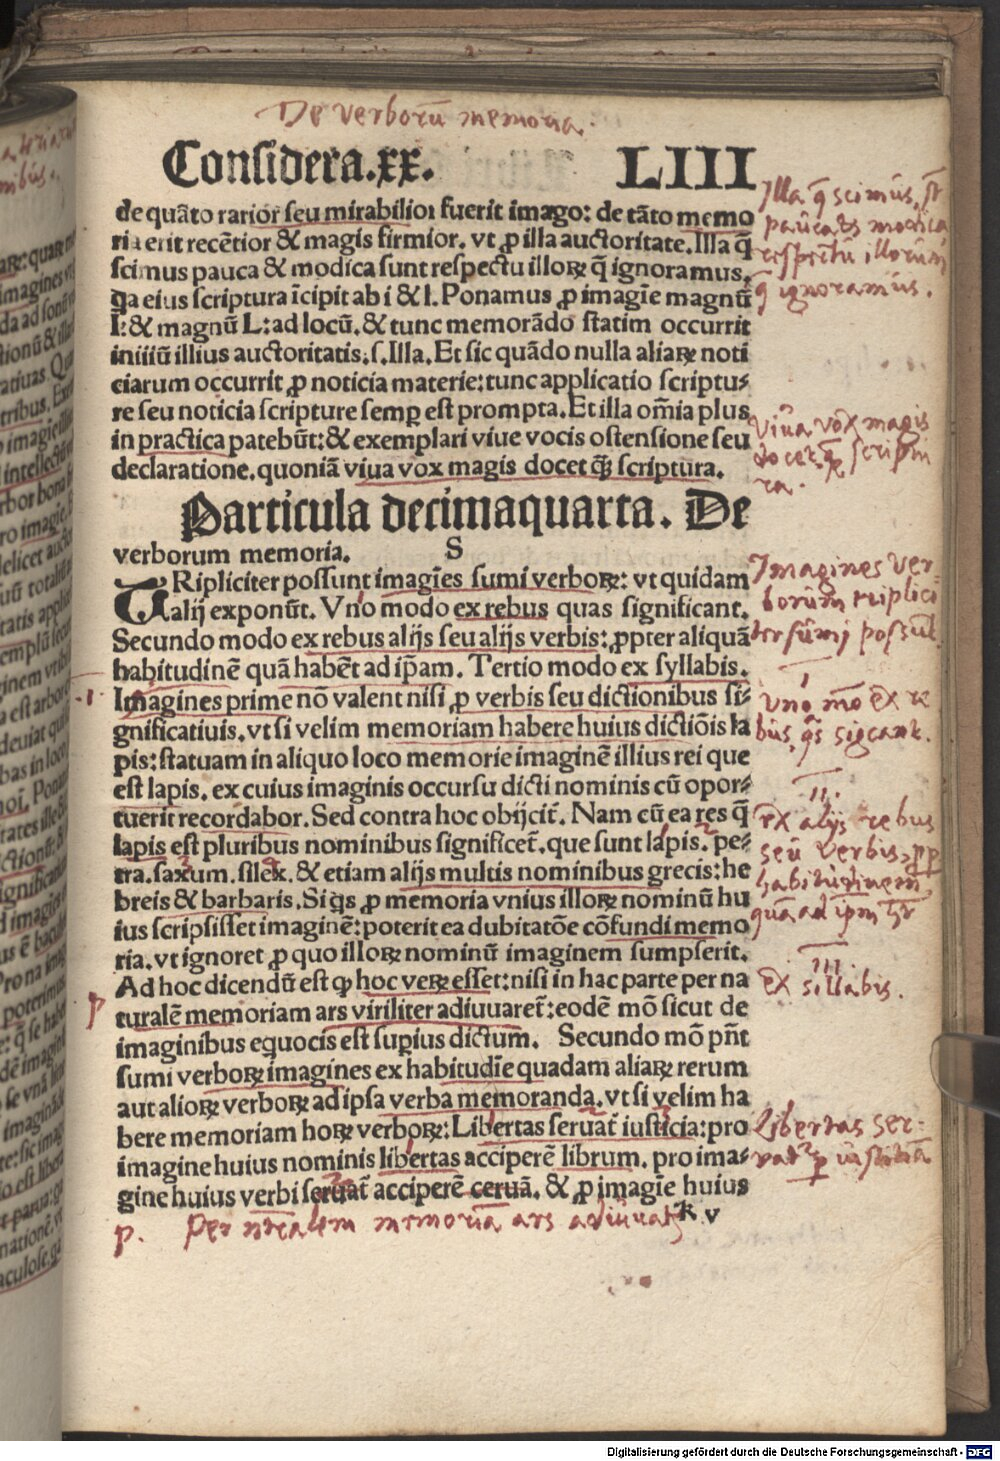 De verborū memoria.
Considera.xx. LIII
de quāto rarior seu mirabilior fuerit imago: de tāto memo
ria erit recētior & magis firmior. vt ꝓ illa auctoritate. Illa q̄
scimus pauca & modica sunt respectu illoꝝ q̄ ignoramus,
qa eius scriptura īcipit ab i & l. Ponamus ꝓ imagīe magnū
I: & magnū L: ad locū. & tunc memorādo statim occurrit
initiū illius auctoritatis. s. Illa. Et sic quādo nulla aliaꝝ noti
ciarum occurrit ꝓ noticia materie: tunc applicatio scriptu⸗
re seu noticia scripture semꝑ est prompta. Et illa om̄ia plus
in practica patebūt: & exemplari viue vocis ostensione seu
declaratione. quoniā viua vox magis docet q̄ꝫ scriptura.
Particula decimaquarta. De
verborum memoria. S
TRipliciter possunt imagīes sumi verboꝝ: vt quidam
alij exponūt. Vno modo ex rebus quas significant.
Secundo modo ex rebus alijs seu alijs verbis: ꝓpter aliquā
habitudinē quā habēt ad ip̄am. Tertio modo ex syllabis.
Imagines prime nō valent nisi ꝓ verbis seu dictionibus si⸗
gnificatiuis. vt si velim memoriam habere huius dictiōis la
pis: statuam in aliquo loco memorie imaginē illius rei que
est lapis. ex cuius imaginis occursu dicti nominis cū opor⸗
tuerit recordabor. Sed contra hoc obijcit̄. Nam cū ea res q̄
lapis est pluribus nominibus significet̄. que sunt lapis. pe⸗
tra. saxum. silex. & etiam alijs multis nominibus grecis: he
breis & barbaris. Si q̇s ꝓ memoria vnius illoꝝ nominū hu
ius scripsisset imaginē: poterit ea dubitatōe cōfundi memo
ria. vt ignoret ꝓ quo illoꝝ nominū imaginem sumpserit.
Ad hoc dicendū est ꝙ hoc veꝝ esset: nisi in hac parte per na
turalē memoriam ars viriliter adiuuaret̄: eodē mō sicut de
imaginibus equocis est supius dictum. Secundo mō pn̄t
sumi verboꝝ imagines ex habitudīe quadam aliaꝝ rerum
aut alioꝝ verboꝝ ad ipsa verba memoranda. vt si velim ha
bere memoriam hoꝝ verboꝝ: Libertas seruat̄ iusticia: pro
imagine huius nominis libertas acciperē librum. pro ima⸗
gine huius verbi seruat̄ acciperē ceruā. & ꝓ imagīe huius
k v
Illa q̄ scimus, st̄
pauca & modica
respectu illorum
q̄ ignoramus.
Viua vox magis
docet q̄ scriptu
ra.
Imagines ver⸗
borum triplici
ter sumi possūt.
I
Vno mo ex re
bus, q̄s sig̅cant.
II.
Ex alijs rebus
seu verbis, ꝓp
habitudinem,
quā ad ipm
III.
Ex sillabis.
Libertas ser⸗
uat ꝑ iustitiā
.1.
p
p. Per n̄ralem memoriā ars adiuuat
Digitalisierung gefördert durch die Deutsche Forschungsgemeinschaft - DFG